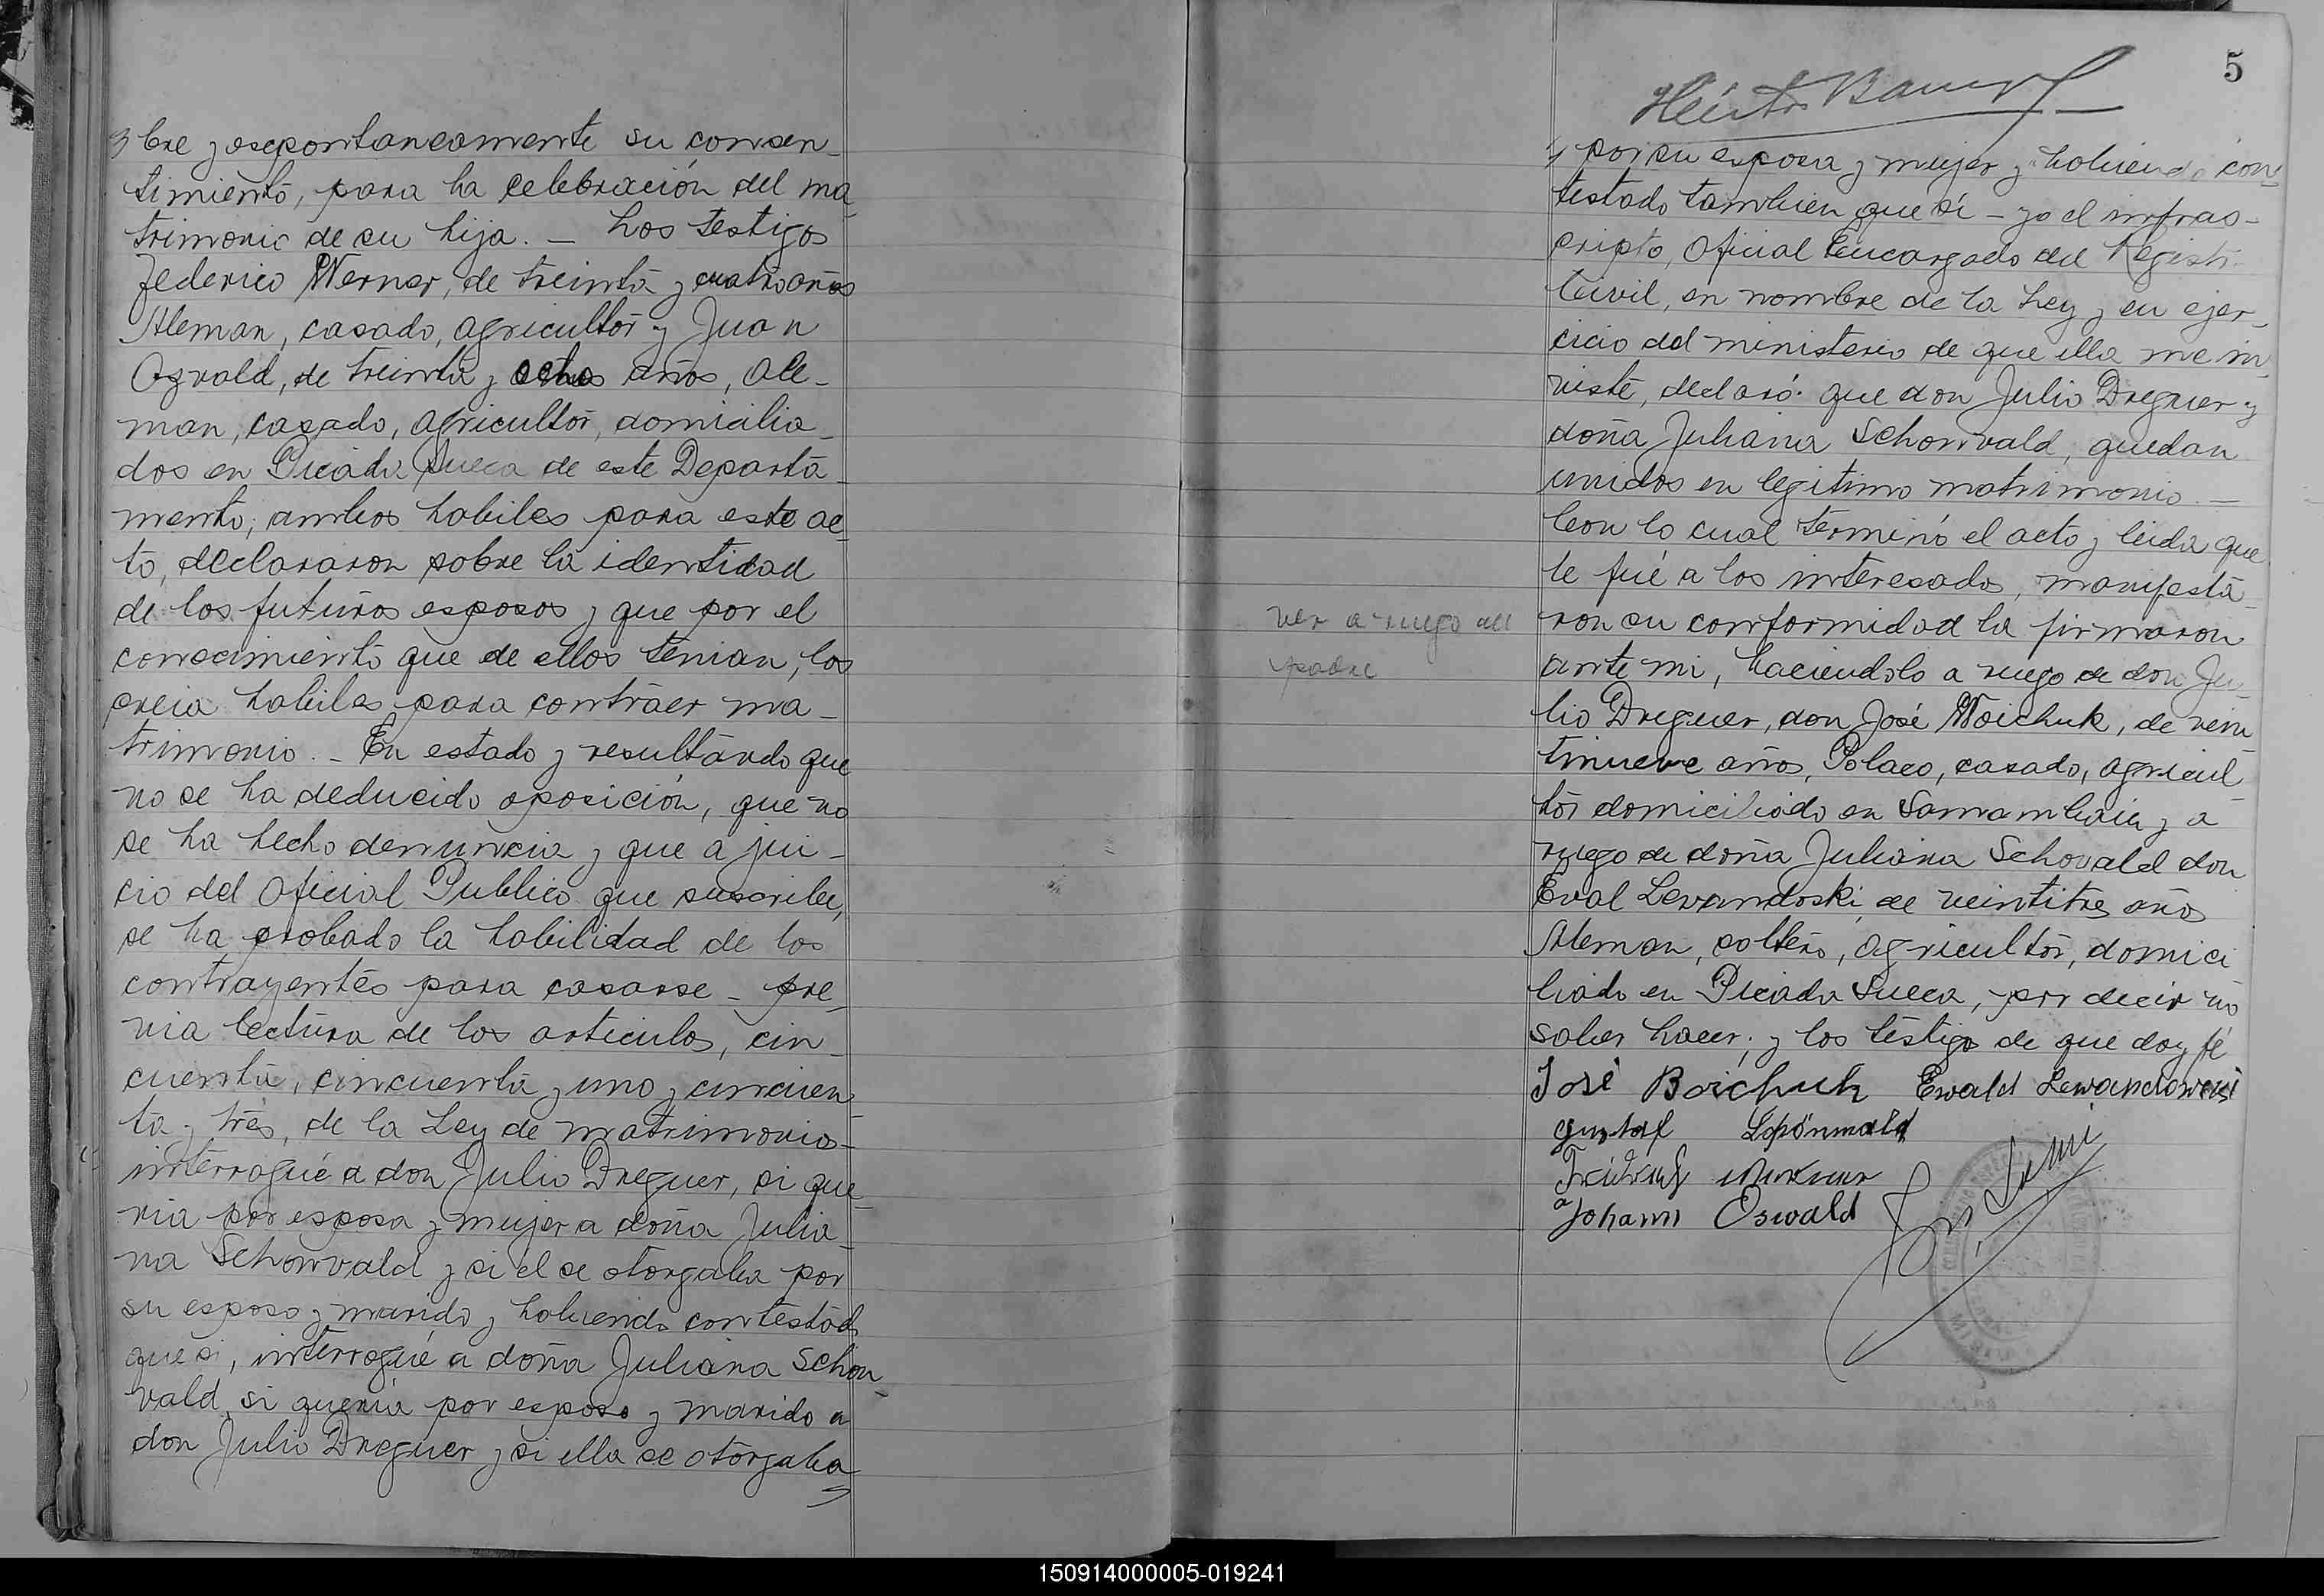 bre y espontaneamente su consen-
timiento, para la celebración del ma-
trimonio de su hija. - Los testigos
Federico Werner, de treinta y cuatro años
Aleman, casado, agricultor y Juan
Osvald, de treinta y ocho años, Ale-
man, casado, agricultor, domicilia-
dos en Picada Sueca de este Departa-
mento; ambos habiles para este ac-
to, declararon sobre la identidad
de los futuros esposos y que por el
conocimiento que de ellos tenian, los
creia habiles para contraer ma-
trimonio. - En estado y resultando que
no se ha deducido oposición, que no
se ha hecho denuncia y que a jui-
cio del Oficial Publico que suscribe,
se ha probado la habilidad de los
contrayentes para casarse - pre-
via lectura de los articulos, cin-
cuenta, cincuenta y uno y cincuen-
ta y tres, de la Ley de matrimonios -
interrogué a don Julio Dreguer, si que-
ria por esposa y mujer a doña Julia-
na Schonvald y si el se otorgaba por
su esposo y marido y habiendo contestado
que si, interrogué a doña Juliana Schon-
vald, si queria por esposo y marido a
don Julio Dreguer y si ella se otorgaba
5
Héctor
por su esposa y mujer y habiendo con-
testado tambien que sí - yo el infras-
cripto, Oficial Encargado del Registro
Civil, en nombre de la Ley y en ejer-
cicio del ministerio de que ella me in-
viste, declaró: que don Julio Dreguer y
doña Juliana Schonvald, quedan
unidos en legitimo matrimonio. -
Con lo cual terminó el acto y leida que
le fué a los interesados, manifesta-
ron su conformidad la firmaron
ante mi, haciendolo a ruego de don Ju-
lio Dreguer, don José Woichuk, de vein-
tinueve años, Polaco, casado, agricul-
tor domiciliado en Samambaia y a
ruego de doña Juliana Schovald don
Eval Levandoski, de veintitres años
Aleman, soltero, agricultor, domici-
liado en Picada Sueca, por decir no
saber hacer; y los testigos de que doy fé
ver a ruego del
padre
José Boichuk Ewald Lewandowski
Gustaf Schönwald
Johann Oswald
150914000005-019241